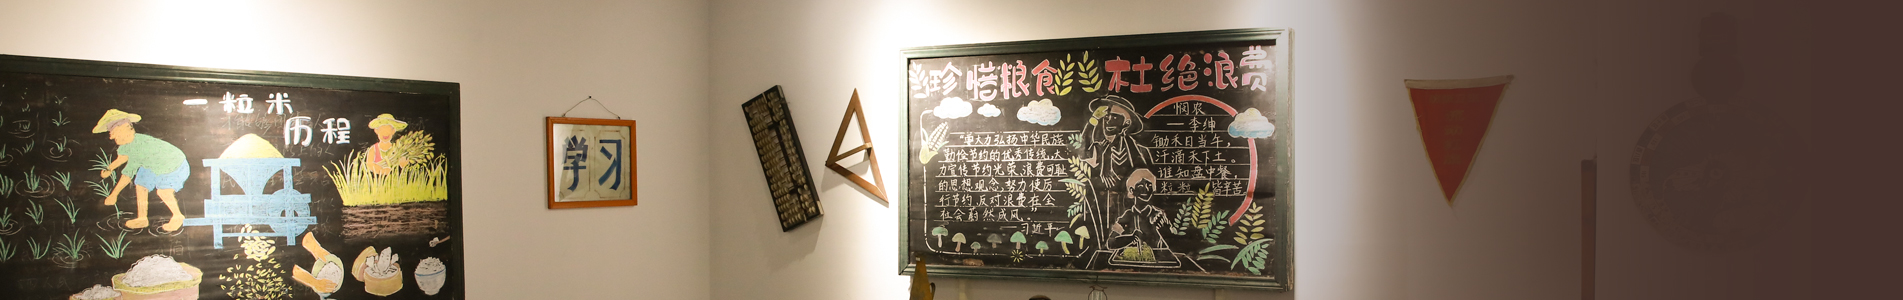 一粒米
历程
学习
珍惜粮食 杜绝浪费
悯农
—李绅
锄禾日当午，
汗滴禾下土。
谁知盘中餐，
粒粒皆辛苦
"要大力弘扬中华民族
勤俭节约的优秀传统，大
力宣传节约光荣、浪费可耻
的思想观念，努力使厉
行节约、反对浪费在全
社会蔚然成风。"
——习近平